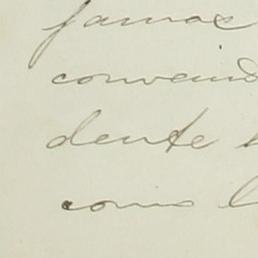 jamas
conveni
dente
como